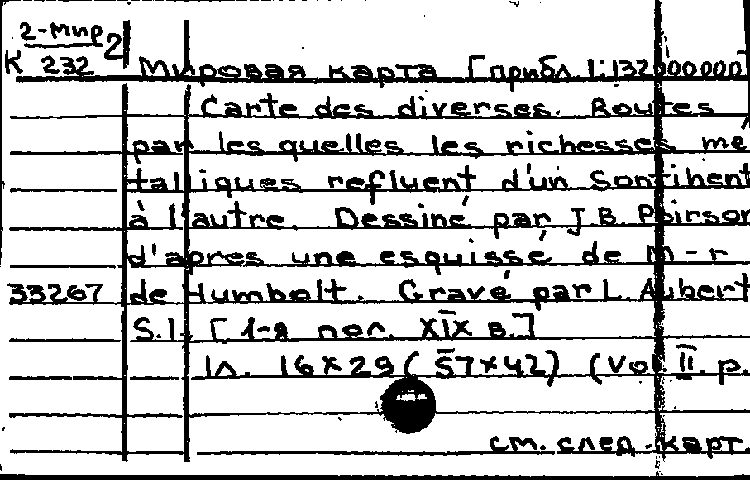 2-Мир 2
К 232
Мировая карта [прибл. 1:132000000]
Carte des diverses. Routes
par les quelles les richesses mé
talliques refluent d'un Sontihent
à l'autre. Dessiné par J.B. Poirson
d'apres une esquissé de M-r
33267 de Humbolt. Gravé par L. Aubert
S.l. [1-я пол. XIX в.]
1л. 16x29 (57x42) (Vol. II. p.
см. след. карт.